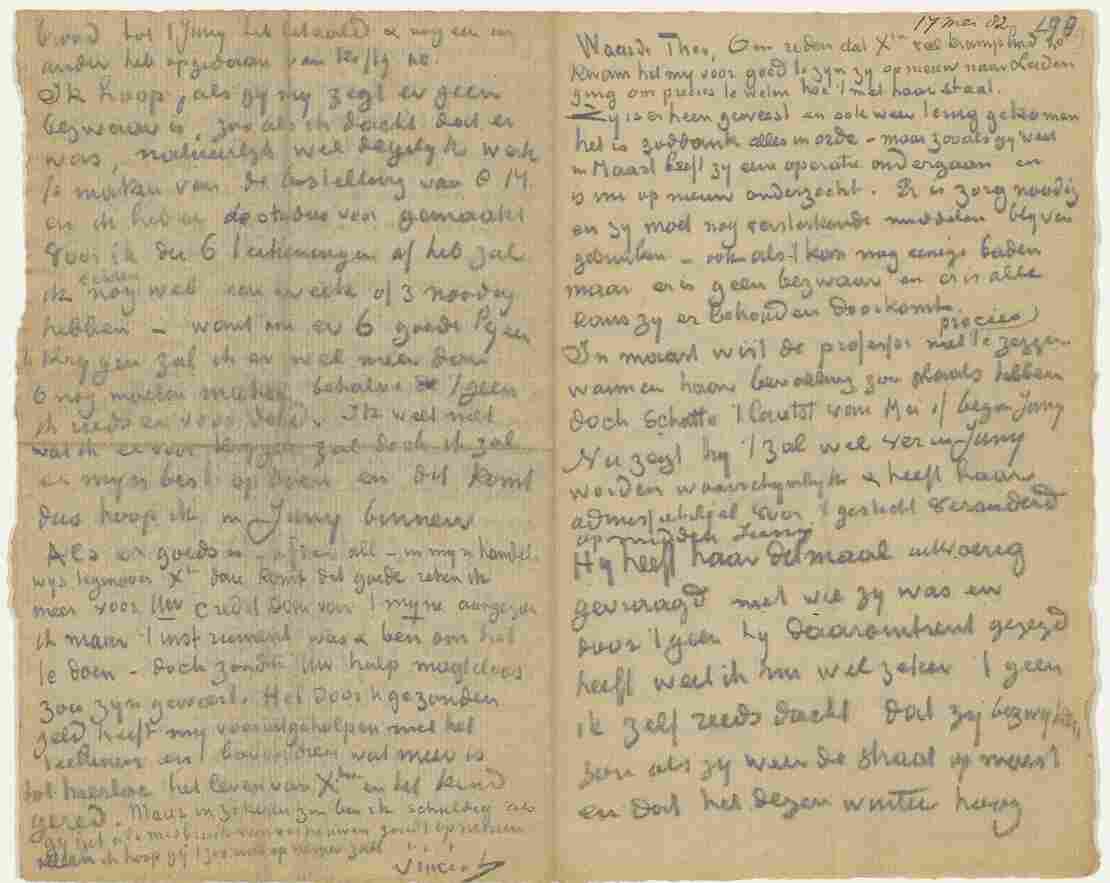 brood tot 1 Juny heb betaald & nog een en
ander heb opgedaan van koffij &c.
Ik hoop, als gy my zegt er geen
bezwaar is, zooals ik dacht dat er
was, natuurlyk wel degelyk werk
te maken van de bestelling van C M.
en ik heb er de studies voor gemaakt
Voor ik die 6 teekeningen af heb zal
ik echter nog wel een week of 3 noodig
hebben – want om er 6 goede te
krygen zal ik er wel meer dan
6 nog moeten maken behalve de 'tgeen
ik reeds en voor doend. Ik weet niet
wat ik er voor krygen zal doch ik zal
er myn best op doen en dit komt
dus hoop ik in Juny binnen
Als er goeds is – after all – in myn handel
wys tegenover Xtien dan komt dat goede reken ik
meer voor Uw credit dan voor 't myne aangezien
ik maar 't instrument was & ben om het
te doen – doch zonder Uw hulp magteloos
zou zyn geweest. Het door U gezonden
geld heeft my vooruitgeholpen met het
teekenen en bovendien wat meer is
tot heerlee het leven van Xtien en het kind
gered. Maar in zekeren zin ben ik schuldig als
gy het als misbruik van vertrouwen zoudt opnemen
ik hoop gij 't zoo niet opnemen zult
Vincent
17 mei 82. 199
Waarde Theo, Om reden dat Xtien veel kramp had &c
kwam het my voor goed te zyn zy op nieuw naar Leiden
ging om precies te weten hoe 't met haar staat.
Zy is er heen geweest en ook weer terug gekomen
het is goddank alles in orde – maar zooals gy weet
in Maart heeft zy eene operatie ondergaan en
is nu op nieuw onderzocht. Er is zorg noodig
en zy moet nog versterkende middelen blyven
gebruiken – ook als 't kon nog eenige baden
maar er is geen bezwaar en er is alle
kans zy er behouden doorkomt.
In maart wist de professor niet precies te zeggen
wanneer haar bevalling zou plaats hebben
doch schatte 't laatst van Mei of begin Juny
Nu zegt hy 't zal wel ver in Juny
worden waarschynlyk & heeft haar
admissiebiljet voor 't gesticht veranderd
op midden Juny
Hy heeft haar ditmaal uitvoerig
gevraagd met wie zy was en
door 'tgeen hy daaromtrent gezegd
heeft weet ik nu wel zeker 't geen
ik zelf reeds dacht dat zy bezwyken
zou als zy weer de straat op moest
en dat het dezen winter hoog